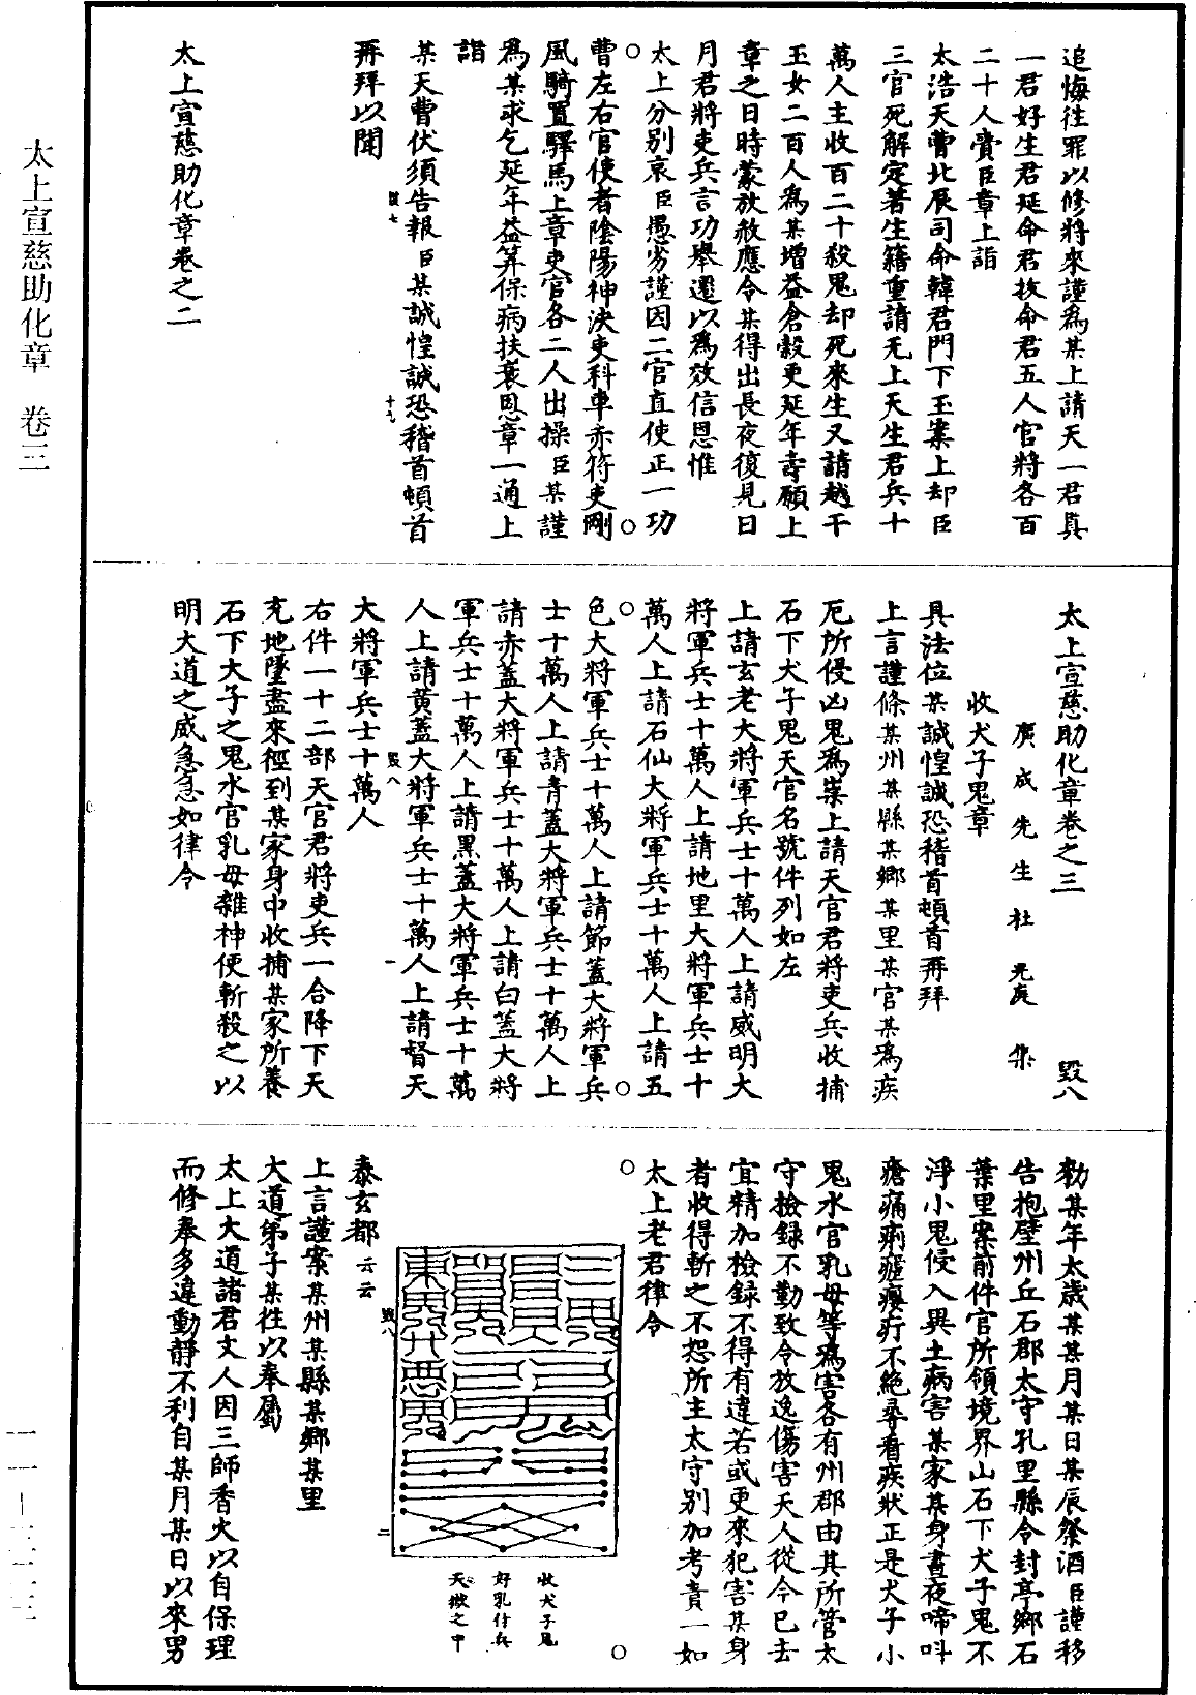 太上宣慈助化章　卷三
一一—三二三
追悔往罪以修將來謹爲某上請天一君真
一君好生君延命君拔命君五人官將各百
二十人賫臣章上詣
太浩天曹北辰司命韓君門下玉案上却臣
三官死解定著生籍重請无上天生君兵十
萬人主收百二十殺鬼却死來生又請越千
玉女二百人爲某增益倉穀更延年壽願上
章之日時蒙放赦應令某得出長夜復見日
月君將吏兵言功舉遷以爲效信恩惟
太上分別哀臣愚劣謹因二官直使正一功
曹左右官使者陰陽神决吏科車赤符吏剛
風騎置驛馬上章吏官各二人出操臣某謹
爲某求乞延年益筭保病扶衰恩章一通上
詣
某天曹伏須告報臣某誠惶誠恐稽首頓首
毀七　十九
再拜以聞
太上宣慈助化章卷之二
太上宣慈助化章卷之三　毀八
廣成先生杜光庭集
收犬子鬼章
具法位某誠惶誠恐稽首頓首再拜
上言謹條某州某縣某鄉某里某官某爲疾
厄所侵凶鬼爲祟上請天官君將吏兵收捕
石下犬子鬼天官名號件列如左
上請玄老大將軍兵士十萬人上請威明大
將軍兵士十萬人上請地里大將軍兵士十
萬人上請石仙大將軍兵士十萬人上請五
色大將軍兵士十萬人上請節蓋大將軍兵
士十萬人上請青蓋大將軍兵士十萬人上
請赤蓋大將軍兵士十萬人上請白蓋大將
軍兵士十萬人上請黑蓋大將軍兵士十萬
人上請黃蓋大將軍兵士十萬人上請督天
毀八　一
大將軍兵士十萬人
右件一十二部天官君將吏兵一合降下天
充地墜盡來徑到某家身中收捕某家所養
石下犬子之鬼水官乳母雜神便斬殺之以
明大道之威急急如律令
勑某年太歲某某月某日某辰祭酒臣謹移
告抱壁州丘石郡太守孔里縣令封亭鄉石
葉里案前件官所領境界山石下犬子鬼不
淨小鬼侵入異土病害某家某身晝夜啼呌
瘡痛痢瘧癭疔不絶尋看疾狀正是犬子小
鬼水官乳母等爲害各有州郡由其所管太
守檢録不勤致令放逸傷害天人從今已去
宜精加檢録不得有違若或更來犯害某身
者收得斬之不恕所主太守別加考責一如
太上老君律令
收犬子鬼
好乳付兵
天獄之中
泰玄都云云
毀八　二
上言謹案某州某縣某鄉某里
大道弟子某往以奉屬
太上大道諸君丈人因三師香火以自保理
而修奉多違動靜不利自某月某日以來男